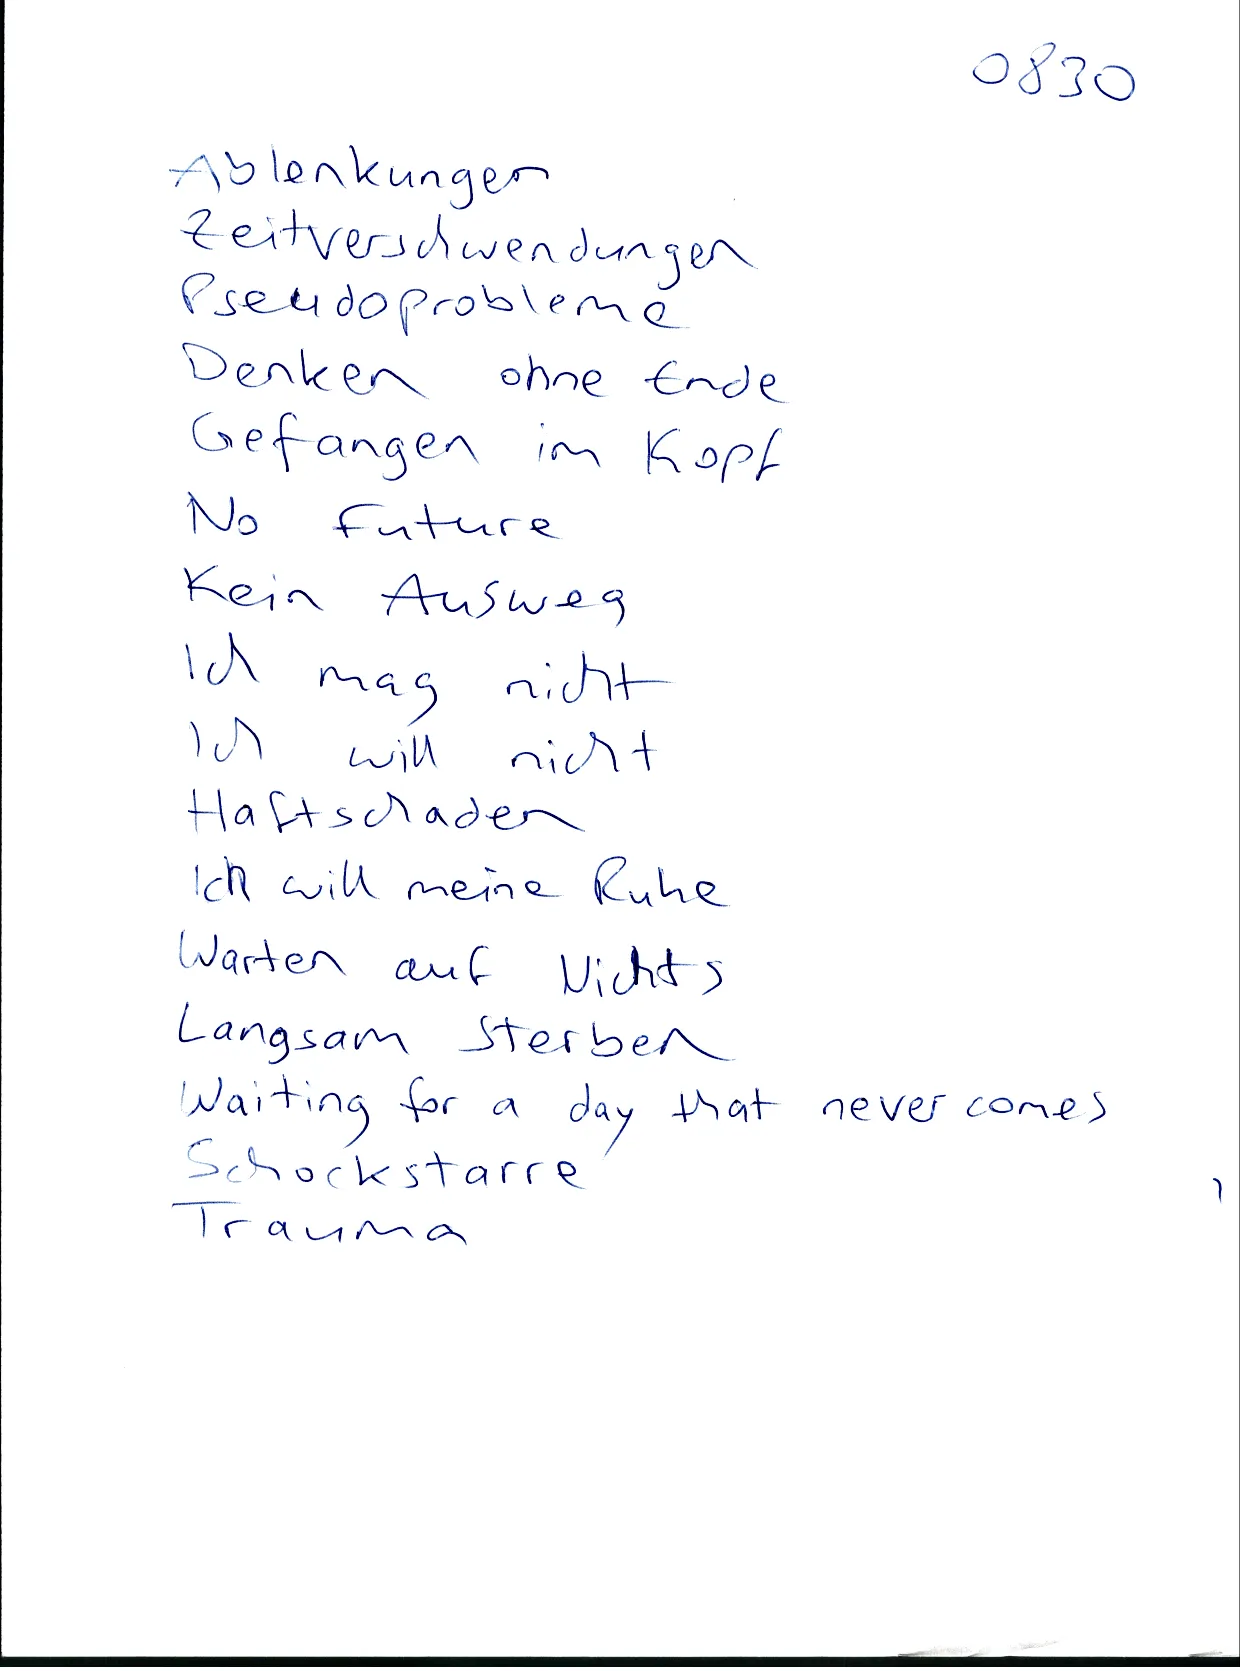 0830
Ablenkungen
Zeitverschwendungen
Pseudoprobleme
Denken ohne Ende
Gefangen im Kopf
No Future
Kein Ausweg
Ich mag nicht
Ich will nicht
Haftschaden
Ich will meine Ruhe
Warten auf Nichts
Langsam sterben
Waiting for a day that never comes
Schockstarre
Trauma